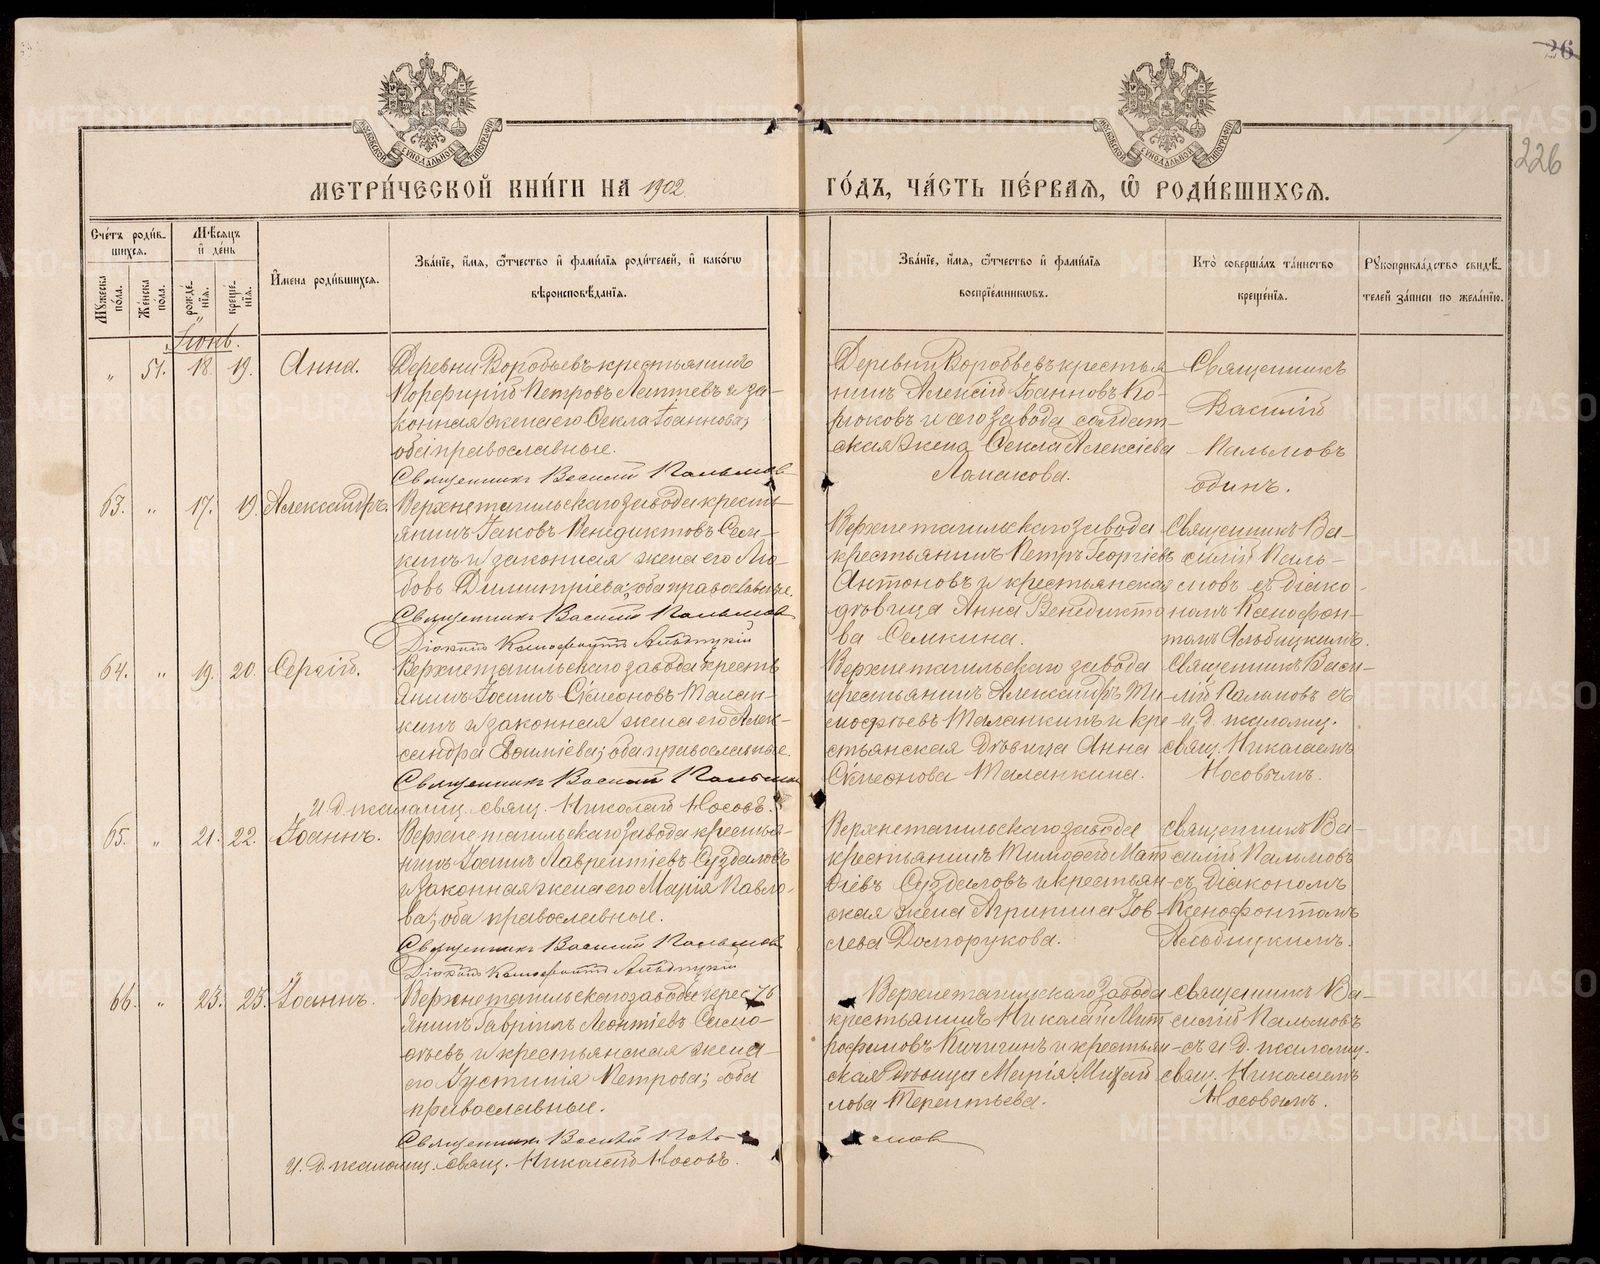 26
226
МОСКОВСКОЙ СѴНОДАЛЬНОЙ ТИПОГРАФІИ
МОСКОВСКОЙ СѴНОДАЛЬНОЙ ТИПОГРАФІИ
МЕТРИ́ЧЕСКОЙ КНИ́ГИ НА 1902
ГО́ДЪ, ЧА́СТЬ ПЕ́РВАЯ, Ѡ РОДИ́ВШИХСЯ.
Сче́тъ роди́в-
шихся.
Мꙋжеска по́ла.
Же́нска по́ла.
Мѣ́сяцъ
и҆ де́нь
рожде́-нїя.
креще́-нїя.
И҆мена роди́вшихся.
Зва́нїе, и҆́мя, ѻ҆́тчество и҆ фами́лїя роди́телей, и҆ како́гѡ
вѣроисповѣ́данїя.
Зва́нїе, и҆́мя, ѻ҆́тчество и҆ фами́лїя
воспрїе́мникѡвъ.
Кто̀ соверша́лъ та́инство
креще́нїя.
Рꙋкоприкла́дство свидѣ́-
телей за́писи по жела́нїю.
Іюнь.
„ 51. 18. 19. Анна.
Деревни Воробьевъ крестьянинъ
Порфирій Петровъ Лаптевъ и за-
конная жена его Секла Іоаннова;
оба православные.
Священникъ Василій Пальмовъ
Деревни Воробьевъ крестья-
нинъ Алексій Іоанновъ Ко-
рюковъ и сего завода солдат-
ская жена Секла Алексіева
Ломакова.
Священникъ
Василій
Пальмовъ
одинъ.
63. „ 17. 19. Александръ.
Верхнетагильскаго завода кресть-
янинъ Іаковъ Венедиктовъ Сем-
кинъ и законная жена его Лю-
бовь Димитріева; оба православные.
Священникъ Василій Пальмовъ
Діаконъ Ксенофонтъ Альбицкій
Верхнетагильскаго завода
крестьянинъ Петръ Георгіевъ
Антоновъ и крестьянская
дѣвица Анна Венедикто-
ва Семкина.
Священникъ Ва-
силій Паль-
мовъ съ діако-
номъ Ксенофон-
томъ Альбицкимъ.
64. „ 19. 20. Сергій.
Верхнетагильскаго завода кресть-
янинъ Іосифъ Сѵмеоновъ Талан-
кинъ и законная жена его Алек-
сандра Евѳиміева; оба православные.
Священникъ Василій Пальмовъ
И. д. псаломщ. свящ. Николай Носовъ.
Верхнетагильскаго завода
крестьянинъ Александръ Ти-
моѳеевъ Таланкинъ и кре-
стьянская дѣвица Анна
Сѵмеонова Таланкина.
Священникъ Васи-
лій Пальмовъ съ
и. д. псаломщ.
свящ. Николаемъ
Носовымъ.
65. „ 21. 22. Іоаннъ.
Верхнетагильскаго завода крестья-
нинъ Іосифъ Лаврентіевъ Суздаловъ
и законная жена его Марія Павло-
ва; оба православные.
Священникъ Василій Пальмовъ
Діаконъ Ксенофонтъ Альбицкій
Верхнетагильскаго завода
крестьянинъ Тимоѳей Мат-
ѳіевъ Суздаловъ и крестьян-
ская жена Агриппина Іов-
лева Долгорукова.
Священникъ Ва-
силій Пальмовъ
съ діакономъ
Ксенофонтомъ
Альбицкимъ.
66. „ 23. 25. Іоаннъ.
Верхнетагильскаго завода кресть-
янинъ Гавріилъ Леонтіевъ Сысо-
евъ и крестьянская жена
его Іустинія Петрова; оба
православные.
Священникъ Василій Паль-
мовъ
И. д. псаломщ. свящ. Николай Носовъ.
Верхнетагильскаго завода
крестьянинъ Николай Мит-
рофановъ Кичигинъ и крестьян-
ская дѣвица Марія Михай-
лова Терентьева.
Священникъ Ва-
силій Пальмовъ
съ и. д. псаломщ.
свящ. Николаемъ
Носовымъ.
METRIKI.GASO-URAL.RU